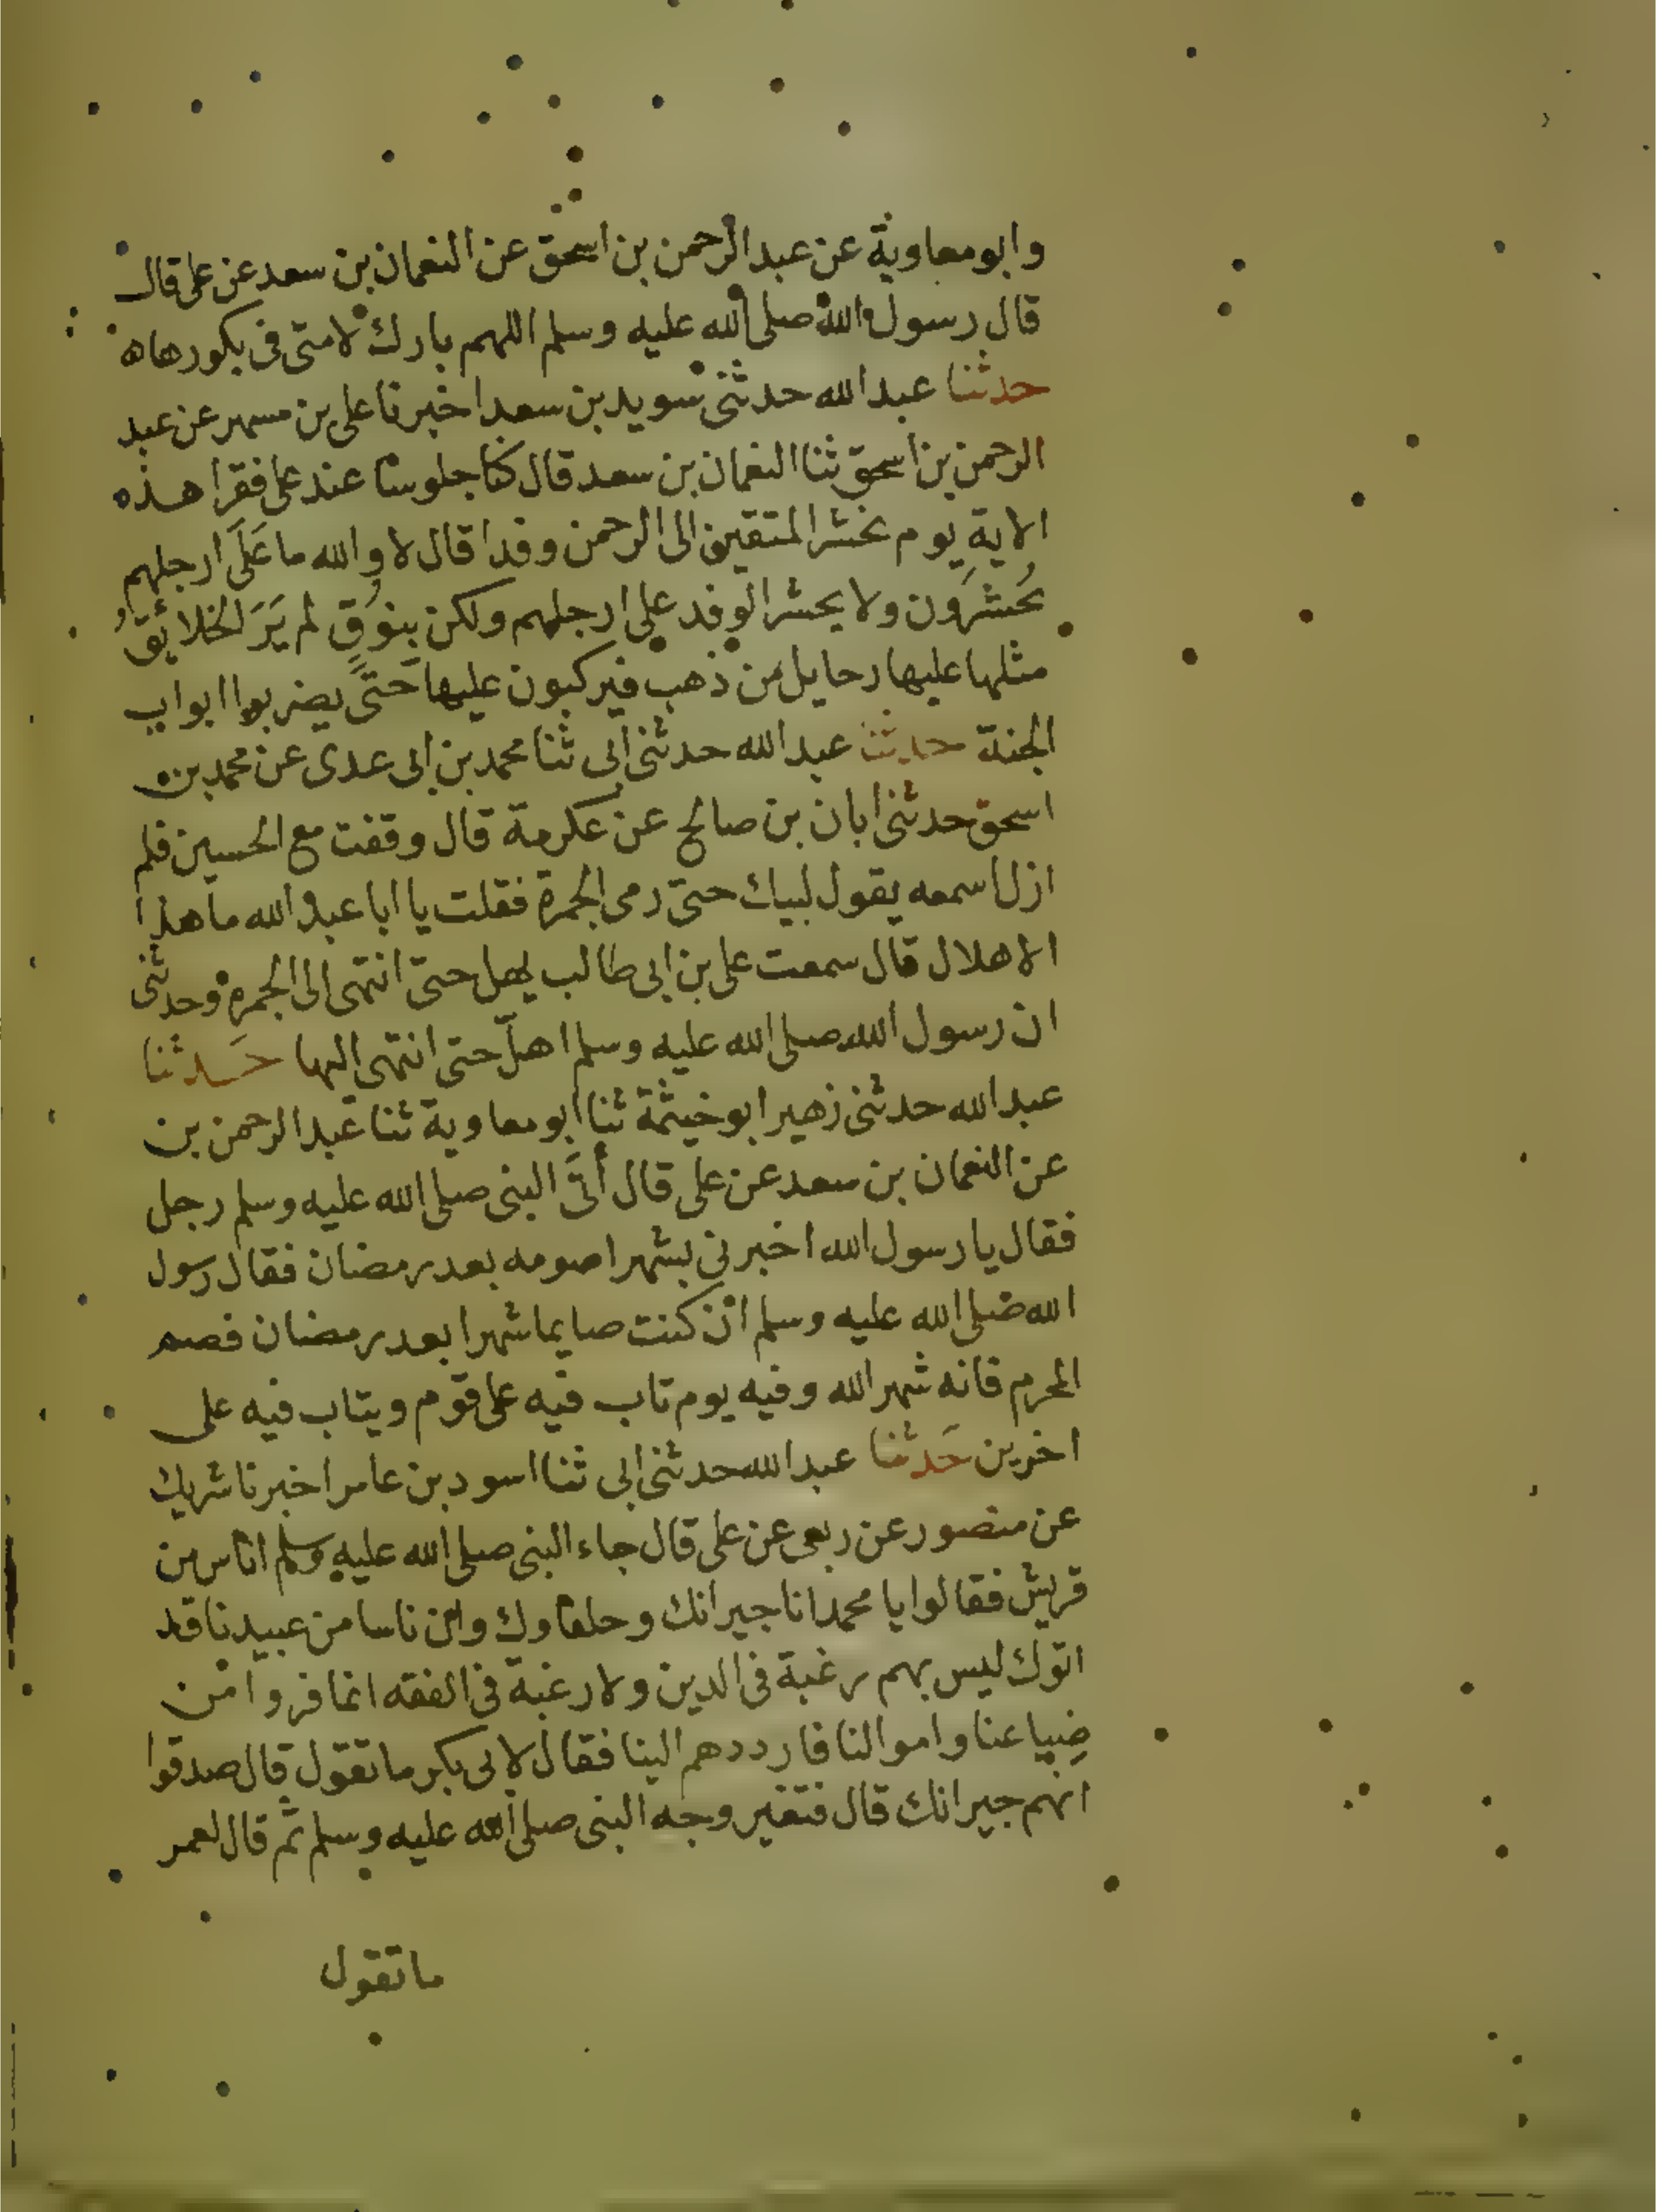 وابو معاوية عن عبد الرحمن بن اسحق عن النعمان بن سعد عن على قال
قال رسول الله صلى الله عليه وسلم اللهم بارك لامتى فى بكورها ه
حدثنا عبد الله حدثنى سويد بن سعد اخبرنا على بن مسهر عن عبد
الرحمن بن اسحق ثنا النعمان بن سعد قال كنا جلوسا عند على فقرا هذه
الاية يوم نحشر المتقين الى الرحمن وفدا قال لا والله ما عَلَى ارجلهم
يُحشَرون ولا يحشر الوفد على ارجلهم ولكن بِنُوقٍ لم يَرَ الخلائقُ
مثلها عليها رحايل من ذهب فيركبون عليها حَتَّى يضربوا ابواب
الجنة حدثنا عبد الله حدثنى ابى ثنا محمد بن ابى عدى عن محمد بن
اسحق حدثنى ابان بن صالح عن عكرمة قال وقفت مع الحسين فلم
ازل اسمعه يقول لبيك حتى رمى الجمرة فقلت يا ابا عبد الله ما هذا
الاهلال قال سمعت على بن ابى طالب يهل حتى انتهى الى الجمرة وحدثنى
ان رسول الله صلى الله عليه وسلم اهلّ حتى انتهى اليها حَدثنا
عبد الله حدثنى زهير ابو خيثمة ثنا ابو معاوية ثنا عبد الرحمن بن
عن النعمان بن سعد عن على قال أتَى النبى صلى الله عليه وسلم رجل
فقال يا رسول الله اخبرنى بشهر اصومه بعد رمضان فقال رسول
الله صلى الله عليه وسلم ان كنت صايما شهرا بعد رمضان فصم
المحرم فانه شهر الله وفيه يوم تاب فيه على قوم ويتاب فيه على
اخرين حَدثنا عبد الله حدثنى ابى ثنا اسود بن عامر اخبرنا شريك
عن منصور عن ربعى عن على قال جاء النبى صلى الله عليه وسلم اناس من
قريش فقالوا يا محمد انا جيرانك وحلفاوك وان ناسا من عبيدنا قد
اتوك ليس بهم رغبة فى الدين ولا رغبة فى الفقه انما فروا من
ضِياعنا واموالنا فارددهم الينا فقال لابى بكر ما تقول قال صدقوا
انهم جيرانك قال فتغير وجه النبى صلى الله عليه وسلم ثم قال لعمر
ما تقول